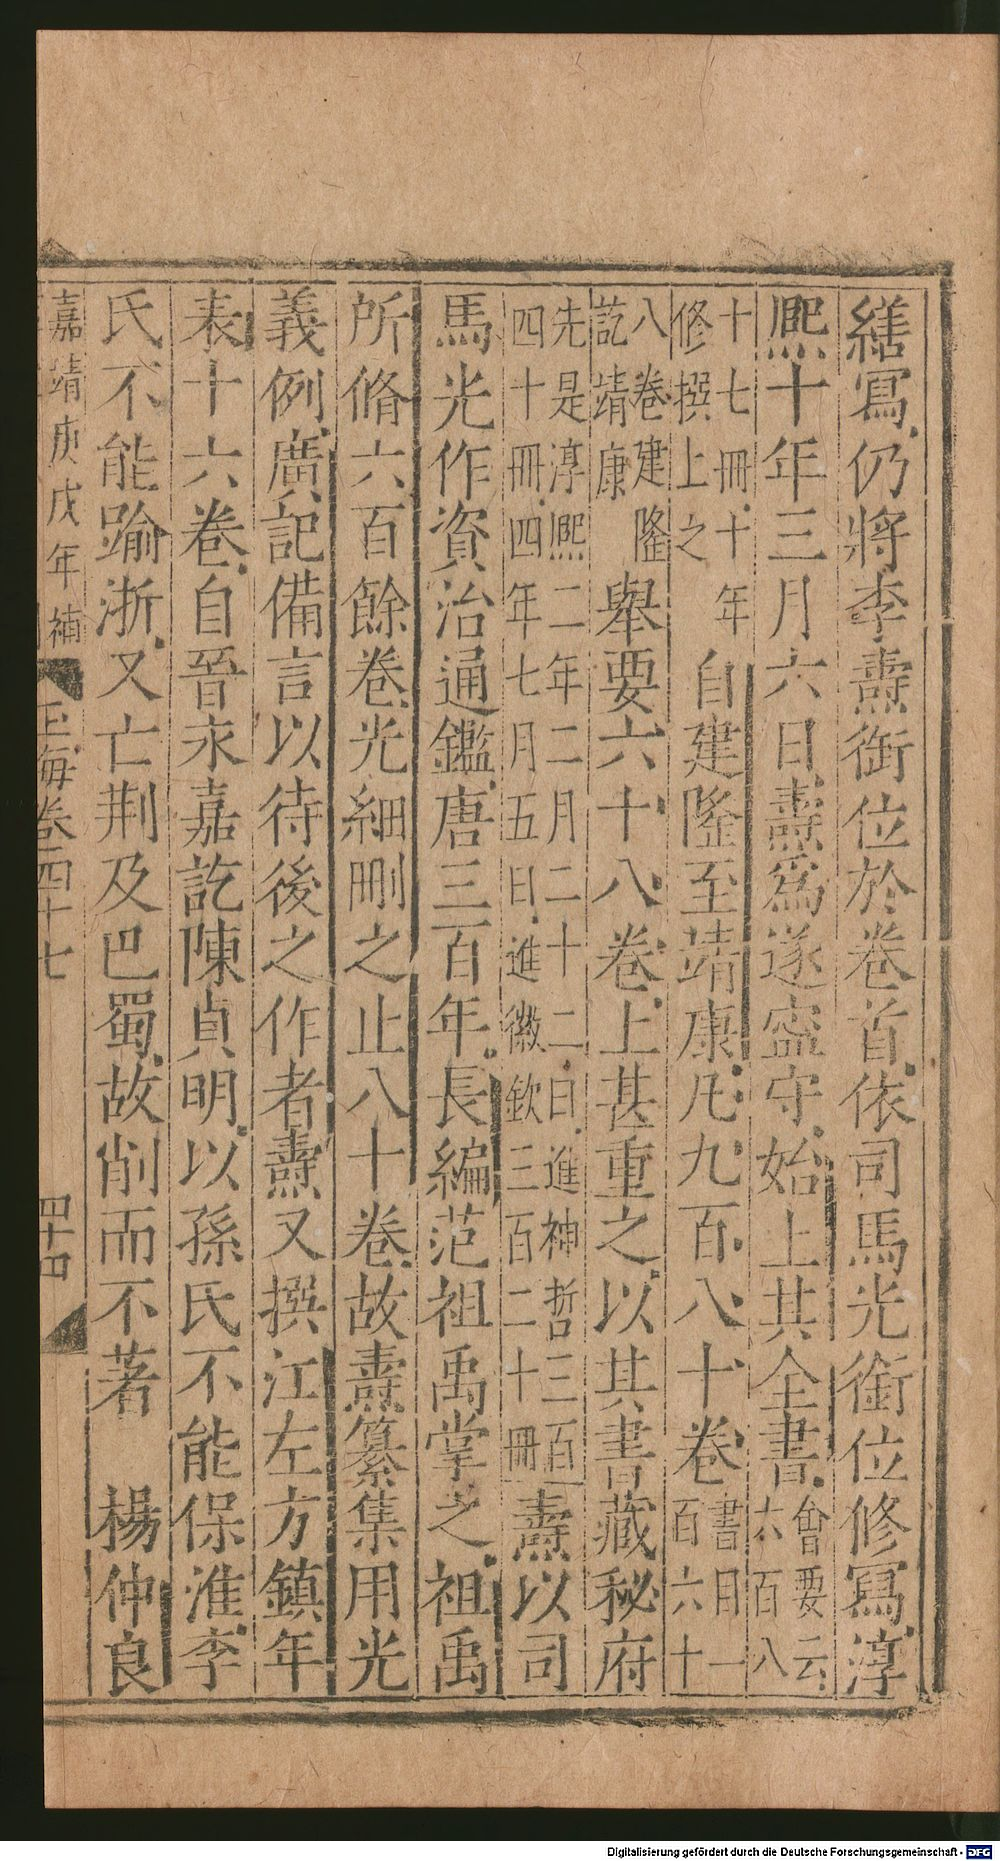 繕寫仍將李燾銜位於卷首依司馬光銜位修寫淳
熙十年三月六日燾爲遂寧守始上其全書會要云六百八
十七冊十年修撰上之 自建隆至靖康凡九百八十卷書目一百六十
八卷建隆訖靖康 舉要六十八卷上甚重之以其書藏秘府
先是淳熙二年二月二十二日進神哲三百四十冊四年七月五日進徽欽三百二十冊燾以司
馬光作資治通鑑唐三百年長編范祖禹掌之祖禹
所脩六百餘卷光細刪之止八十卷故燾纂集用光
義例廣記備言以待後之作者燾又撰江左方鎮年
表十六卷自晉永嘉訖陳貞明以孫氏不能保淮李
氏不能踰浙又亡荆及巴蜀故削而不著 楊仲良
嘉靖庚戌年補 玉海卷四十七 四十四
Digitalisierung gefördert durch die Deutsche Forschungsgemeinschaft - DFG